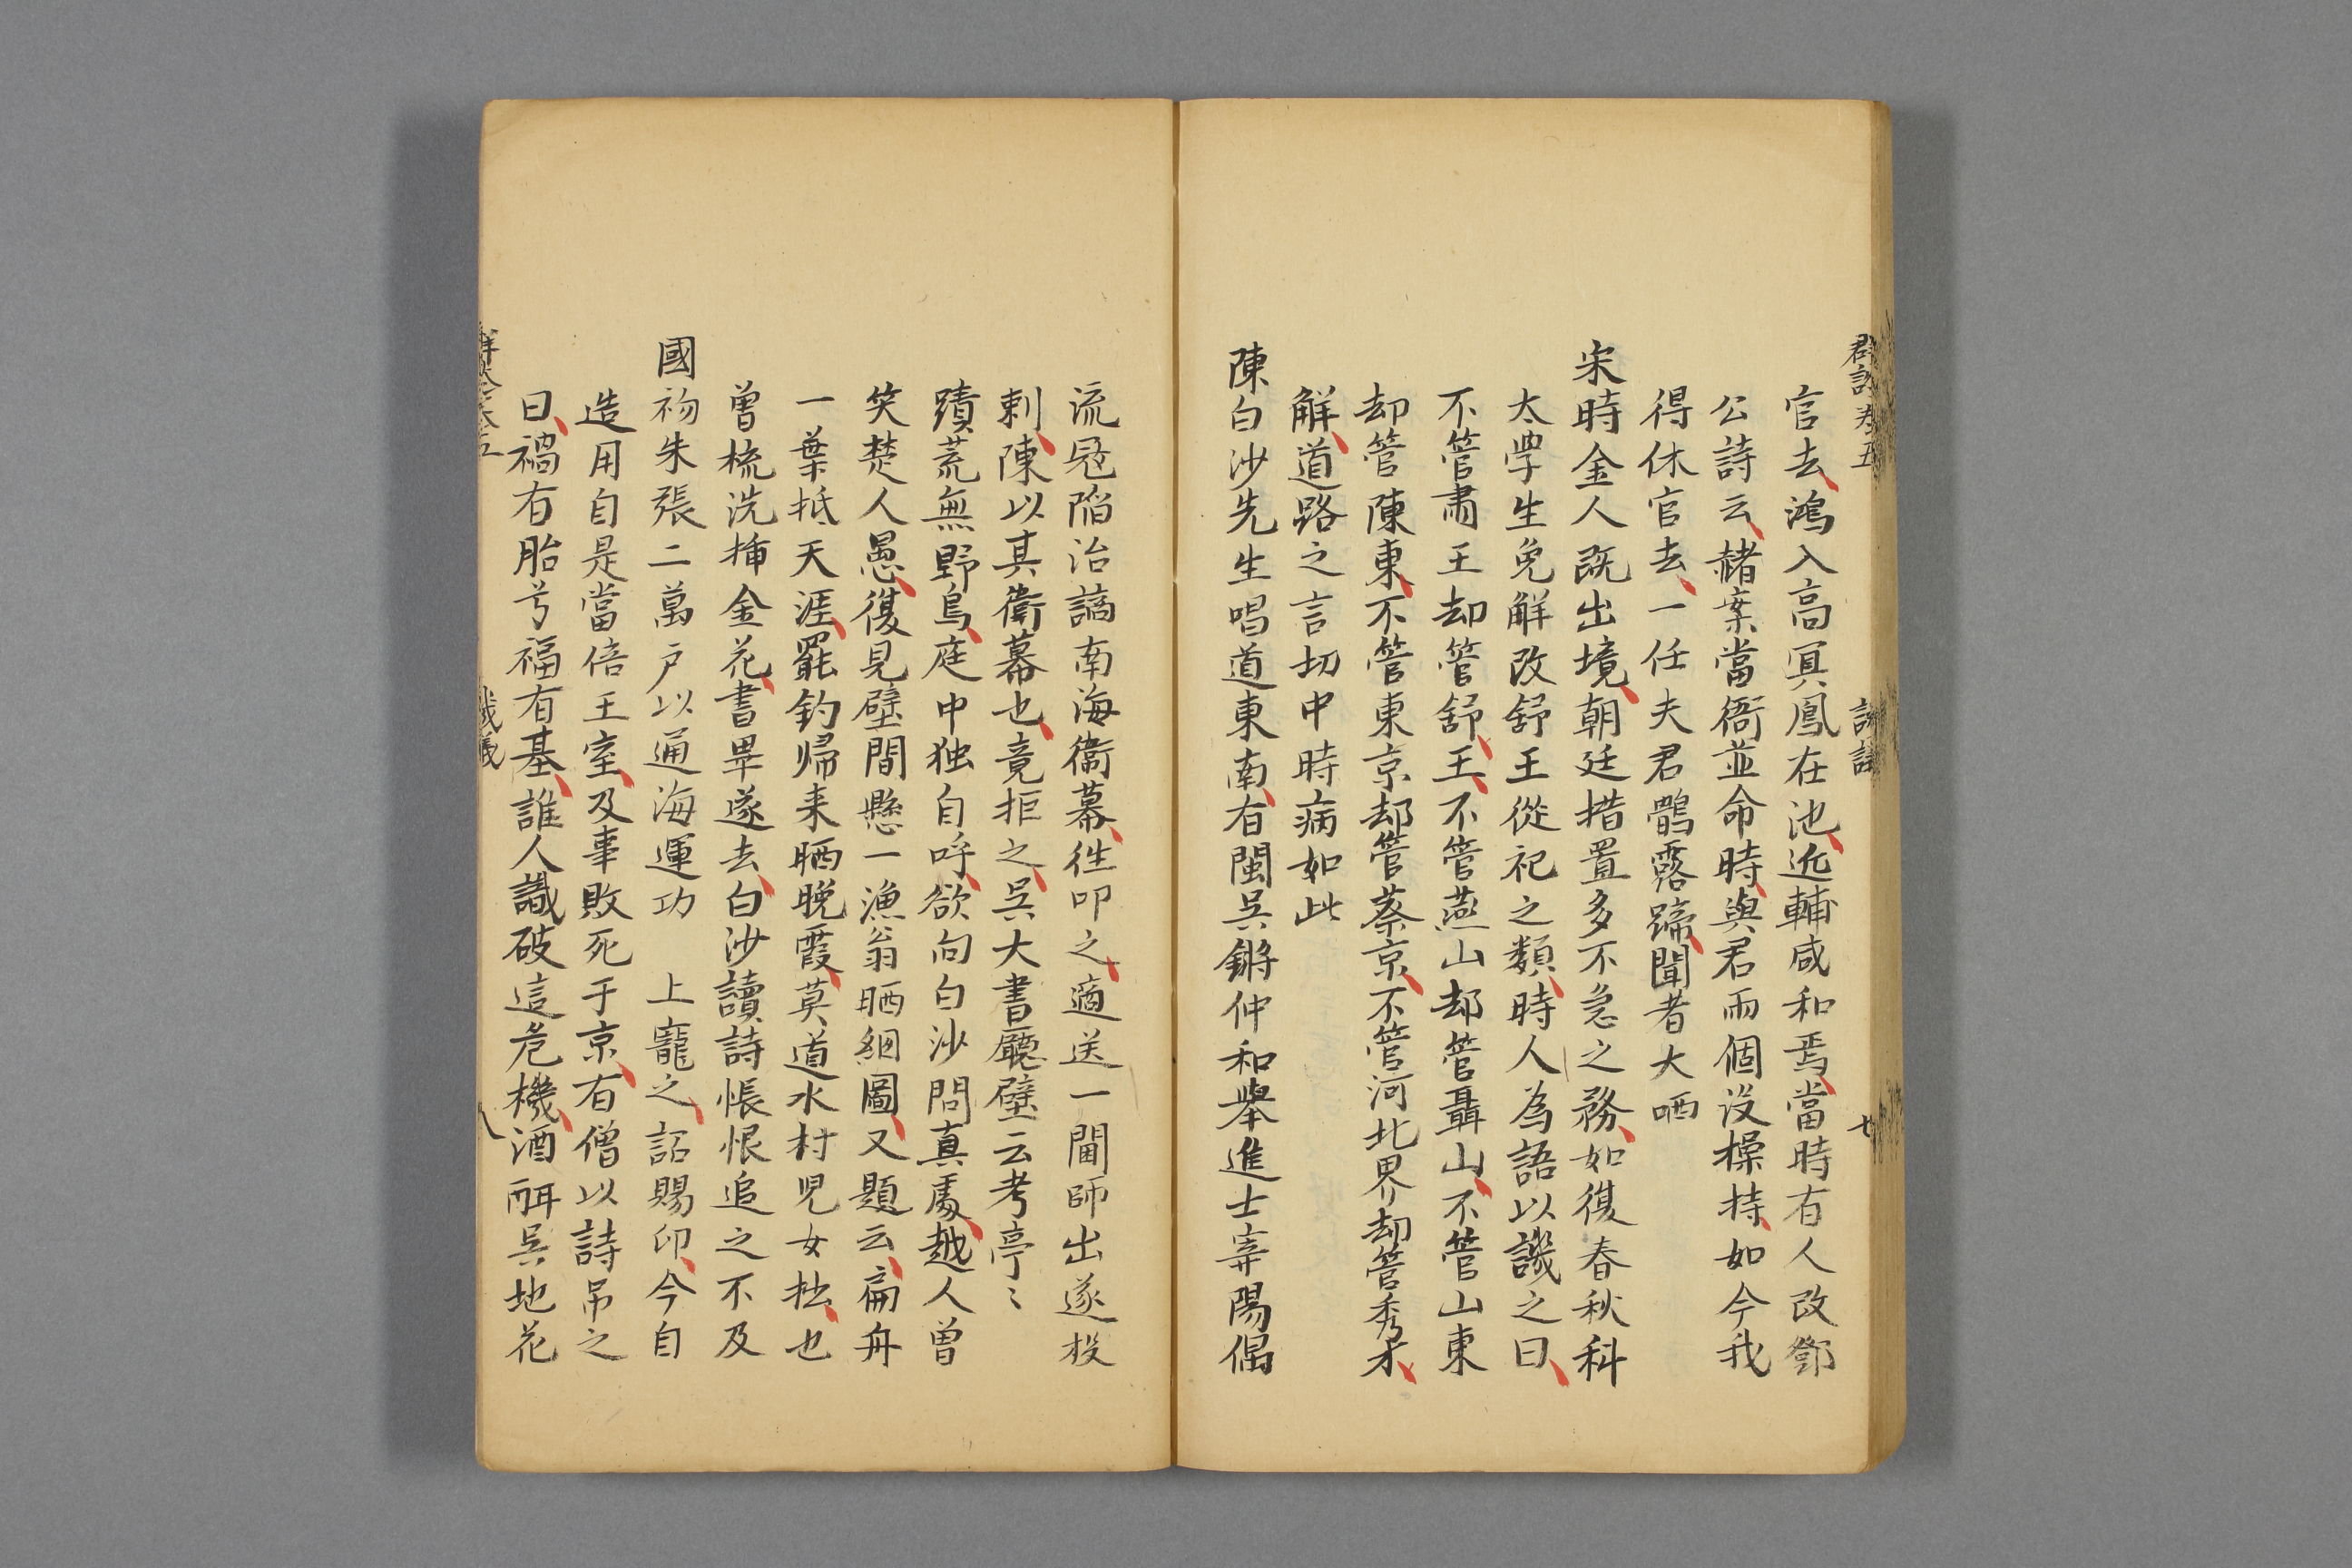 官去鴻入高冥鳳在池近輔咸和焉當時有人改鄧
公詩云赭案當衙並命時與君兩個没操持如今我
得休官去一任夫君鶻露蹄聞者大哂
宋時金人既出境朝廷措置多不急之務如復春秋科
太學生免解改舒王從祀之類時人為語以譏之曰
不管肅王却管舒王不管燕山却管聶山不管山東
却管陳東不管東京却管蔡京不管河北界却管秀才
解道路之言切中時病如此
陳白沙先生唱道東南有閩吳鏘仲和舉進士宰陽偶
流冦陷治謫南海衛幕徃叩之適送一閫師出遂投
刺陳以其衛幕也竟拒之吳大書廳壁云考亭〻
蹟荒無野鳥庭中独自呼欲向白沙問真䖏越人曾
笑楚人愚復見壁間懸一漁翁晒網圖又題云扁舟
一葉抵天涯罷釣帰来晒晚霞莫道水村児女拙也
曾梳洗揷金花書畢遂去白沙讀詩悵恨追之不及
國初朱張二萬户以通海運功　上寵之詔賜印今自
造用自是當倍王室及事敗死于京有僧以詩吊之
曰禍有胎兮福有基誰人識破這危機酒酣吳地花